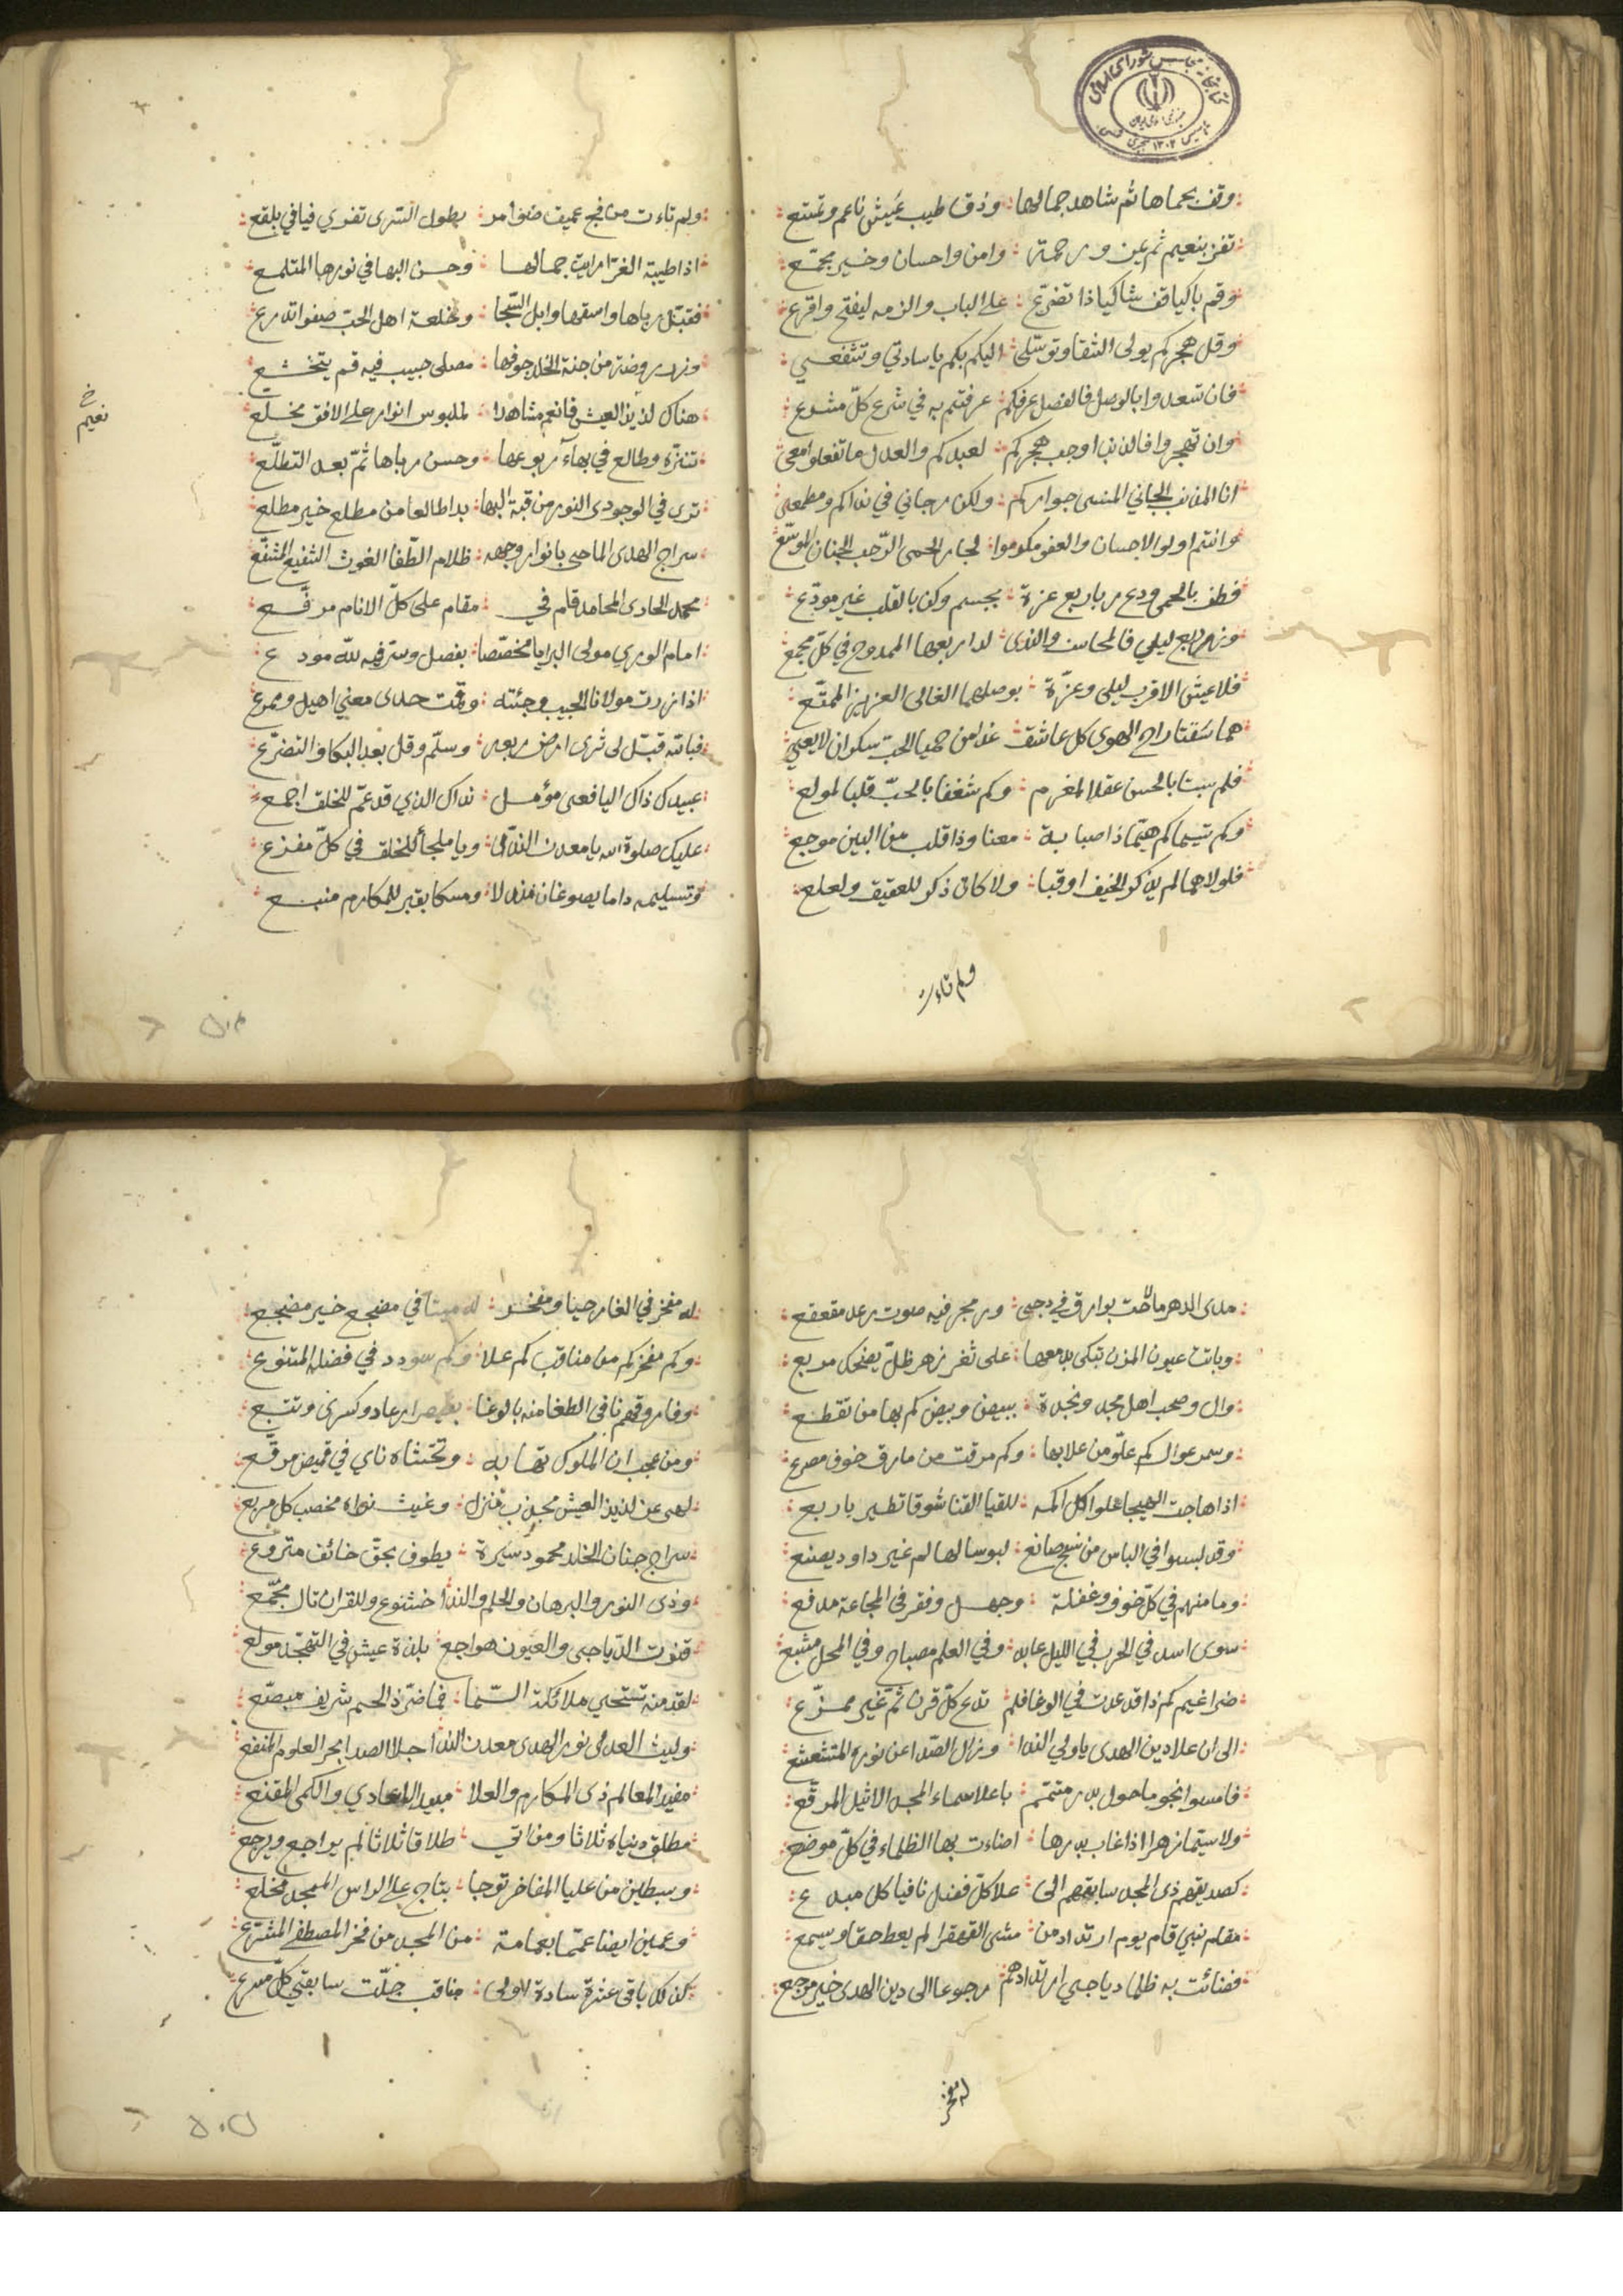 كتابخانه مجلس شورای اسلامی
۱۳۰۲
وقف بحماها ثم شاهد جمالها وذق طيب عيش ناعم وتمتع
تفز بنعيم ثم عين ورحمة وامن واحسان وخير مجمع
وقم باكيا قف شاكيا ذا تضرع على الباب والزمه ليفتح واقرع
وقل هجركم يولى الشقا وتوسلى اليكم بكم يا سادتي وتشفعي
فان تسعدوا بالوصل فالفضل عرفكم عرفتم به في شرع كل مشرع
وان تهجروا فالذنب اوجب هجركم لعبدكم والعدل ما تفعلوا معى
انا المذنب الجاني المسى جواركم ولكن رجاني في نداكم ومطمعى
وانتم اولوا الاحسان والعفو مكرموا لجار الحمى الرحب الجنان الموسع
فطف بالحمى ودع رباربع عزة بجسم وكن بالقلب غير مودع
وزر ربع ليلي فالمحاسن والندى لدا ربعها الممدوح في كل مجمع
فلا عيش الا قرب ليلى وعزة بوصلهما الغالى العزيز الممتع
هما سقتا راح الهوى كل عاشق غدا من حميا الحب سكران لا يعي
فلم سبتا بالحسن عقلا لمغرم وكم شغفا بالحب قلبا لمولع
وكم تيما كم هيما ذا صبابة معنا وذا قلب من البين موجع
فلولاهما لم يذكر الخيف او قبا ولا كان ذكر للعقيق ولعلع
ولم تاءت
ولم تاءت من فج عميق ضوامر بطول السرى تفري فيافي بلقع
اذا طيبة الغرا رايت جمالها وحسن البها في نورها المتلمع
فقبل رباها واسقها وابل السجا وخلعة اهل الحب صفوا تدرع
وزر روضة من جنة الخلد جوفها مصلى حبيب فيه قم بتخشع
هناك لذيذ العيش فانعم مشاهدا لملبوس انوار على الافق مخلع
خ نعيم
تنزه وطالع في بهاء ربوعها وحسن رباها ثم بعد التطلع
ترى في الوجودى النور من قبة البها بدا طالعا من مطلع خير مطلع
سراج الهدى الماحى بانوار وجهه ظلام الطغا الغوث الشفيع المشفع
محمد الحاوى المحامد قام في مقام على كل الانام مرفع
امام الورى مولى البرايا مخصصا بفضل وسر فيه لله مودع
اذا زرت مولانا الحبيب وجئته وقمت حدى معني اهيل ومربع
فبالله قبل لى ثرى ارض ربعه وسلم وقل بعد البكا والتضرع
عبيدك ذاك اليافعى مؤمل نداك الذي قد عم للخلق اجمع
عليك صلوة الله يا معدن الندى ويا ملجأ للخلق في كل مفزع
وتسليمه داما يصوغان مندلا ومسكا بقبر للمكارم منبع
۵۰۴
مدى الدهر ما لاحت بوارق في دجى وزمجر فيه صوت رعد مقعقع
وباتت عيون المزن تبكى بدمعها على ثغر زهر ظل يضحك مربع
وال وصحب اهل مجد ونجدة ببيض وبيض كم بها من تقطع
وسمر عوال كم علو من علا بها وكم مرقت من مارق خوف مصرع
اذا هاجت الهيجا علوا كل اكمه للقيا القنا شوقا تطير باربع
وقد لبسوا في الباس من نسج صانع لبوسا لها لم غير داود يصنع
وما منهم في كل خوف وغفلة وجهل وفقر في المجاعة مدفع
سوى اسد في الحرب في الليل عابد وفي العلم مصباح وفي المحل مشبع
ضراغيم كم ذا قد عدت في الوغا فلم تدع كل قرن ثم غير ممزع
الى ان علا دين الهدى يا ولي الندا وزال الصدا عن نوره المتشعشع
فامسوا نجوما حول بدر متمم باعلا سماء المجد الاثيل المرفع
ولا سيما زهرا اذا غاب بدرها اضاءت بها الظلماء في كل موضع
كصديقهم ذى المجد سابقهم الى علا كل فضل نافيا كل مبدع
مقام نبي قام يوم ارتداد من مشى القهقرا لم يعط حقا ويسمع
فضائت به ظلما دياجي ارتدادهم رجوعا الى دين الهدى خير مرجع
له مفخر
له مفخر في الغار حيا ومفخر له ميتا في مضجع خير مضجع
وكم مفخر كم من مناقب كم علا وكم سودد في فضله المتنوع
وفاروقهم نافى الطغا منه بالوغا بقيصر ارعاد وكسرى وتتبع
ومن عجب ان الملوك تهابه وتخشاه ناي في قميص مرقع
لهى عن لذيذ العيش مجدب منزل وغيث نداه مخصب كل مربع
سراج جنان الخلد محمود سيرة يطوف بحق خائف متروع
وذى النور والبرهان والحلم والندا خشوع وللقران تال مجمع
قنوت الدياجى والعيون هواجع بلذة عيش في التهجد مولع
لقد منه تستحي ملائكة السما فما ضر ذا الحسم شريف مبضع
وليث العدى نور الهدى معدن الندا جلا الصدا بحر العلوم المنفع
مفيد المعالم ذى المكارم والعلا مبيد الاعادي والكمى المقنع
مطلق دنياه ثلاثا ومن اتى طلاقا ثلاثا لم يراجع ويرجع
وسبطين من عليا المفاخر توجا بتاج على الراس الممجد مخلع
وعمين ايضا عمما بعمامة من المجد من فخر المصطفى المشرع
كذا كل باقى عشرة سادة لاولى مناقب جلت سابقي كل مسرع
۵۰۵